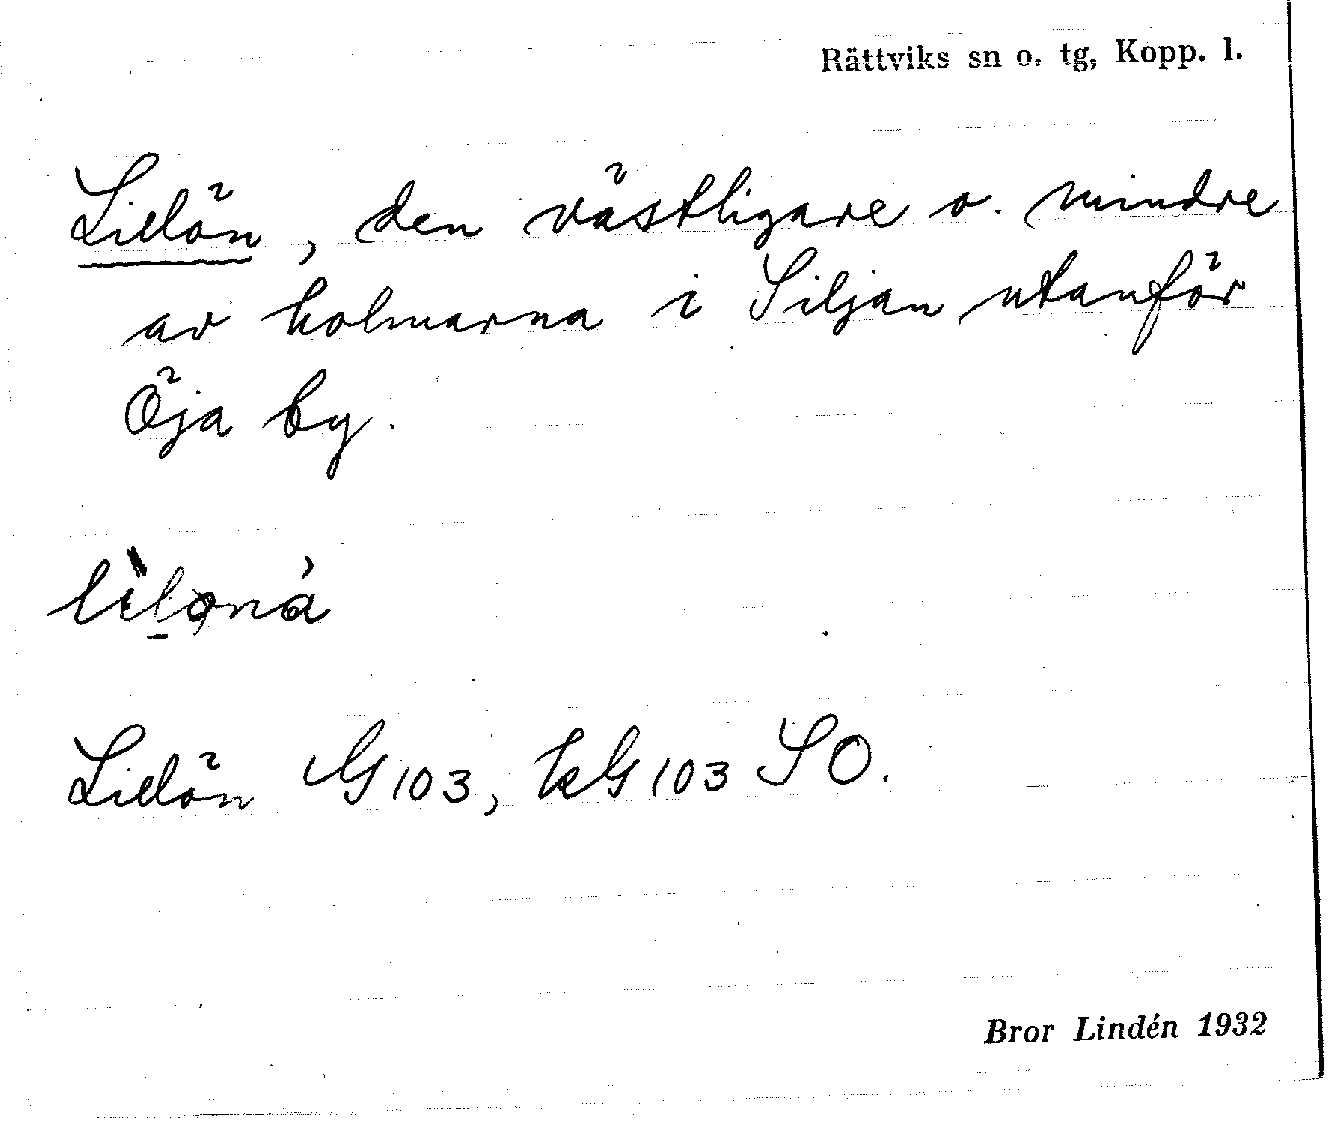 Rättviks sn o. tg, Kopp. l.
Lillön, den västligare o. mindre
av holmarna i Siljan utanför
Öja by.
Lillön G103, kG103 SO.
Bror Lindén 1932